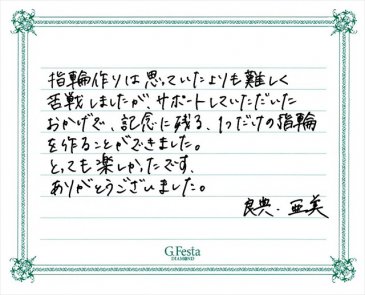 指輪作りは思っていたよりも難しく
苦戦しましたが、サポートしていただいた
おかげで、記念に残る、1つだけの指輪
を作ることができました。
とっても楽しかったです、
ありがとうございました。
良典・亜美
G.Festa
DIAMOND